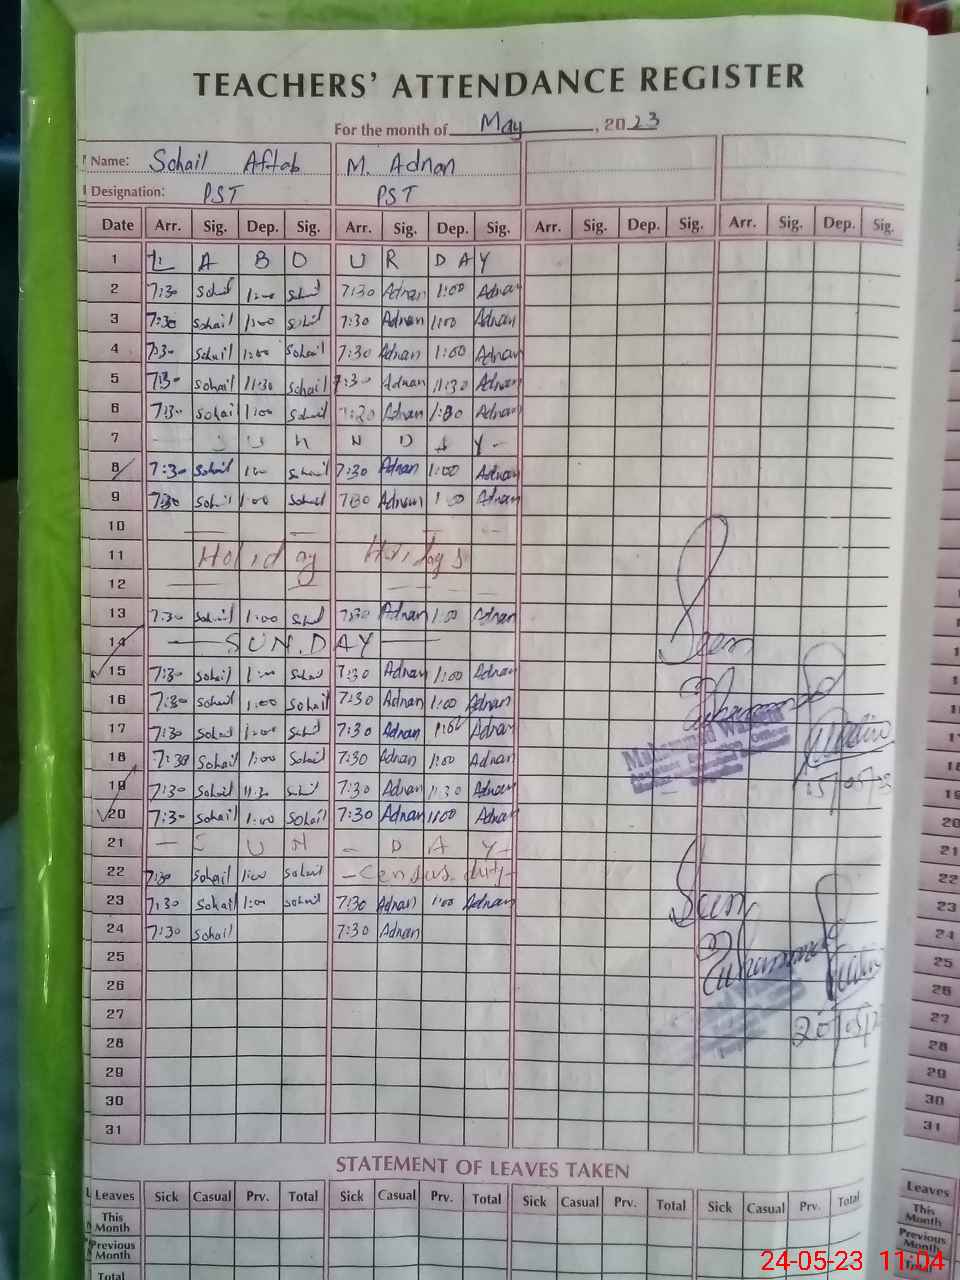 TEACHERS' ATTENDANCE REGISTER
For the month of May, 2023
Name: Sohail Aftab M. Adnan
Designation: PST PST
Date Arr. Sig. Dep. Sig. Arr. Sig. Dep. Sig. Arr. Sig. Dep. Sig. Arr. Sig. Dep. Sig.
1 L A B O U R D A Y
2 7:30 Sohail 1:00 Sohail 7:30 Adnan 1:00 Adnan
3 7:30 Sohail 1:00 Sohail 7:30 Adnan 1:00 Adnan
4 7:30 Sohail 1:00 Sohail 7:30 Adnan 1:00 Adnan
5 7:30 Sohail 11:30 Sohail 7:30 Adnan 11:30 Adnan
6 7:30 Sohail 1:00 Sohail Adnan Adnan
7 S U N N D A Y
8 7:30 Sohail 1:00 Sohail 7:30 Adnan 1:00 Adnan
9 7:30 Sohail 1:00 Sohail 7:30 Adnan 1:00 Adnan
10
11 Holiday Holidays
12
13 7:30 Sohail 1:00 Sohail 7:30 Adnan 1:00 Adnan
14 SUN.DAY
15 7:30 Sohail 1:00 Sohail 7:30 Adnan 1:00 Adnan
16 7:30 Sohail 1:00 Sohail 7:30 Adnan 1:00 Adnan
17 7:30 Sohail 1:00 Sohail 7:30 Adnan 1:00 Adnan
18 7:30 Sohail 1:00 Sohail 7:30 Adnan 1:00 Adnan
19 7:30 Sohail 11:30 Sohail 7:30 Adnan 11:30 Adnan
20 7:30 Sohail 1:00 Sohail 7:30 Adnan 1:00 Adnan
21 S U N - D A Y
22 7:30 Sohail 1:00 Sohail - Census duty -
23 7:30 Sohail 1:00 Sohail 7:30 Adnan 1:00 Adnan
24 7:30 Sohail 7:30 Adnan
25
26
27
28
29
30
31
Seen
Muhammad
15/05/23
Seen
Muhammad
20/05/2
STATEMENT OF LEAVES TAKEN
Leaves Sick Casual Prv. Total Sick Casual Prv. Total Sick Casual Prv. Total Sick Casual Prv. Total
This Month
Previous Month
Total
24-05-23 11:04